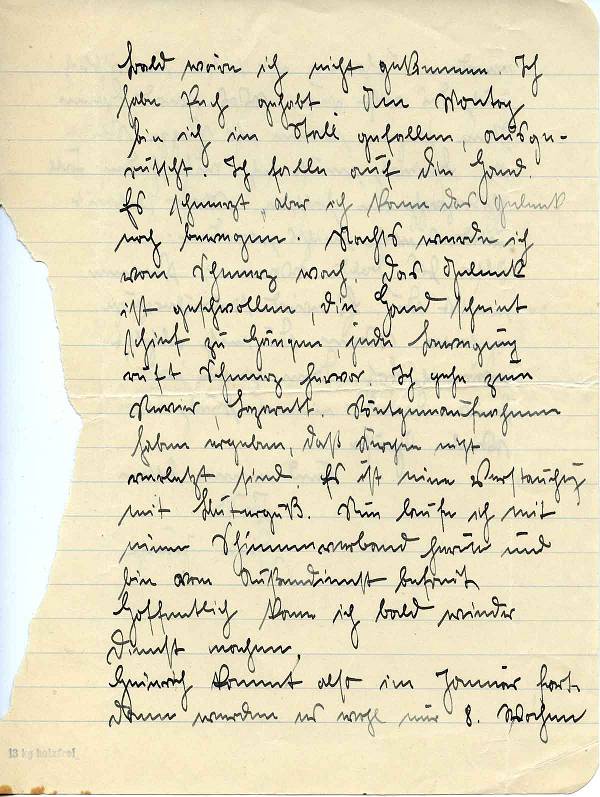 bald wäre ich nicht gekommen. Ich
habe Pech gehabt. Am Montag
bin ich im Stall gefallen, ausge-
rutscht. Ich falle auf die Hand.
Es schmerzt, aber ich kann das Gelenk
noch bewegen. Nachts werde ich
vom Schmerz wach. Das Gelenk
ist geschwollen, die Hand scheint
schief zu hängen, jede Bewegung
ruft Schmerz hervor. Ich gehe zum
Revier, Lazarett. Röntgenaufnahmen
haben ergeben, daß Knochen nicht
verletzt sind. Es ist eine Verstauchung
mit Bluterguß. Nun laufe ich mit
einem Schienenverband herum und
bin vom Außendienst befreit.
Hoffentlich kann ich bald wieder
Dienst machen.
Heinrich kommt also im Januar fort.
Dann werden es wohl nur 8. Wochen
13 kg holzfrei